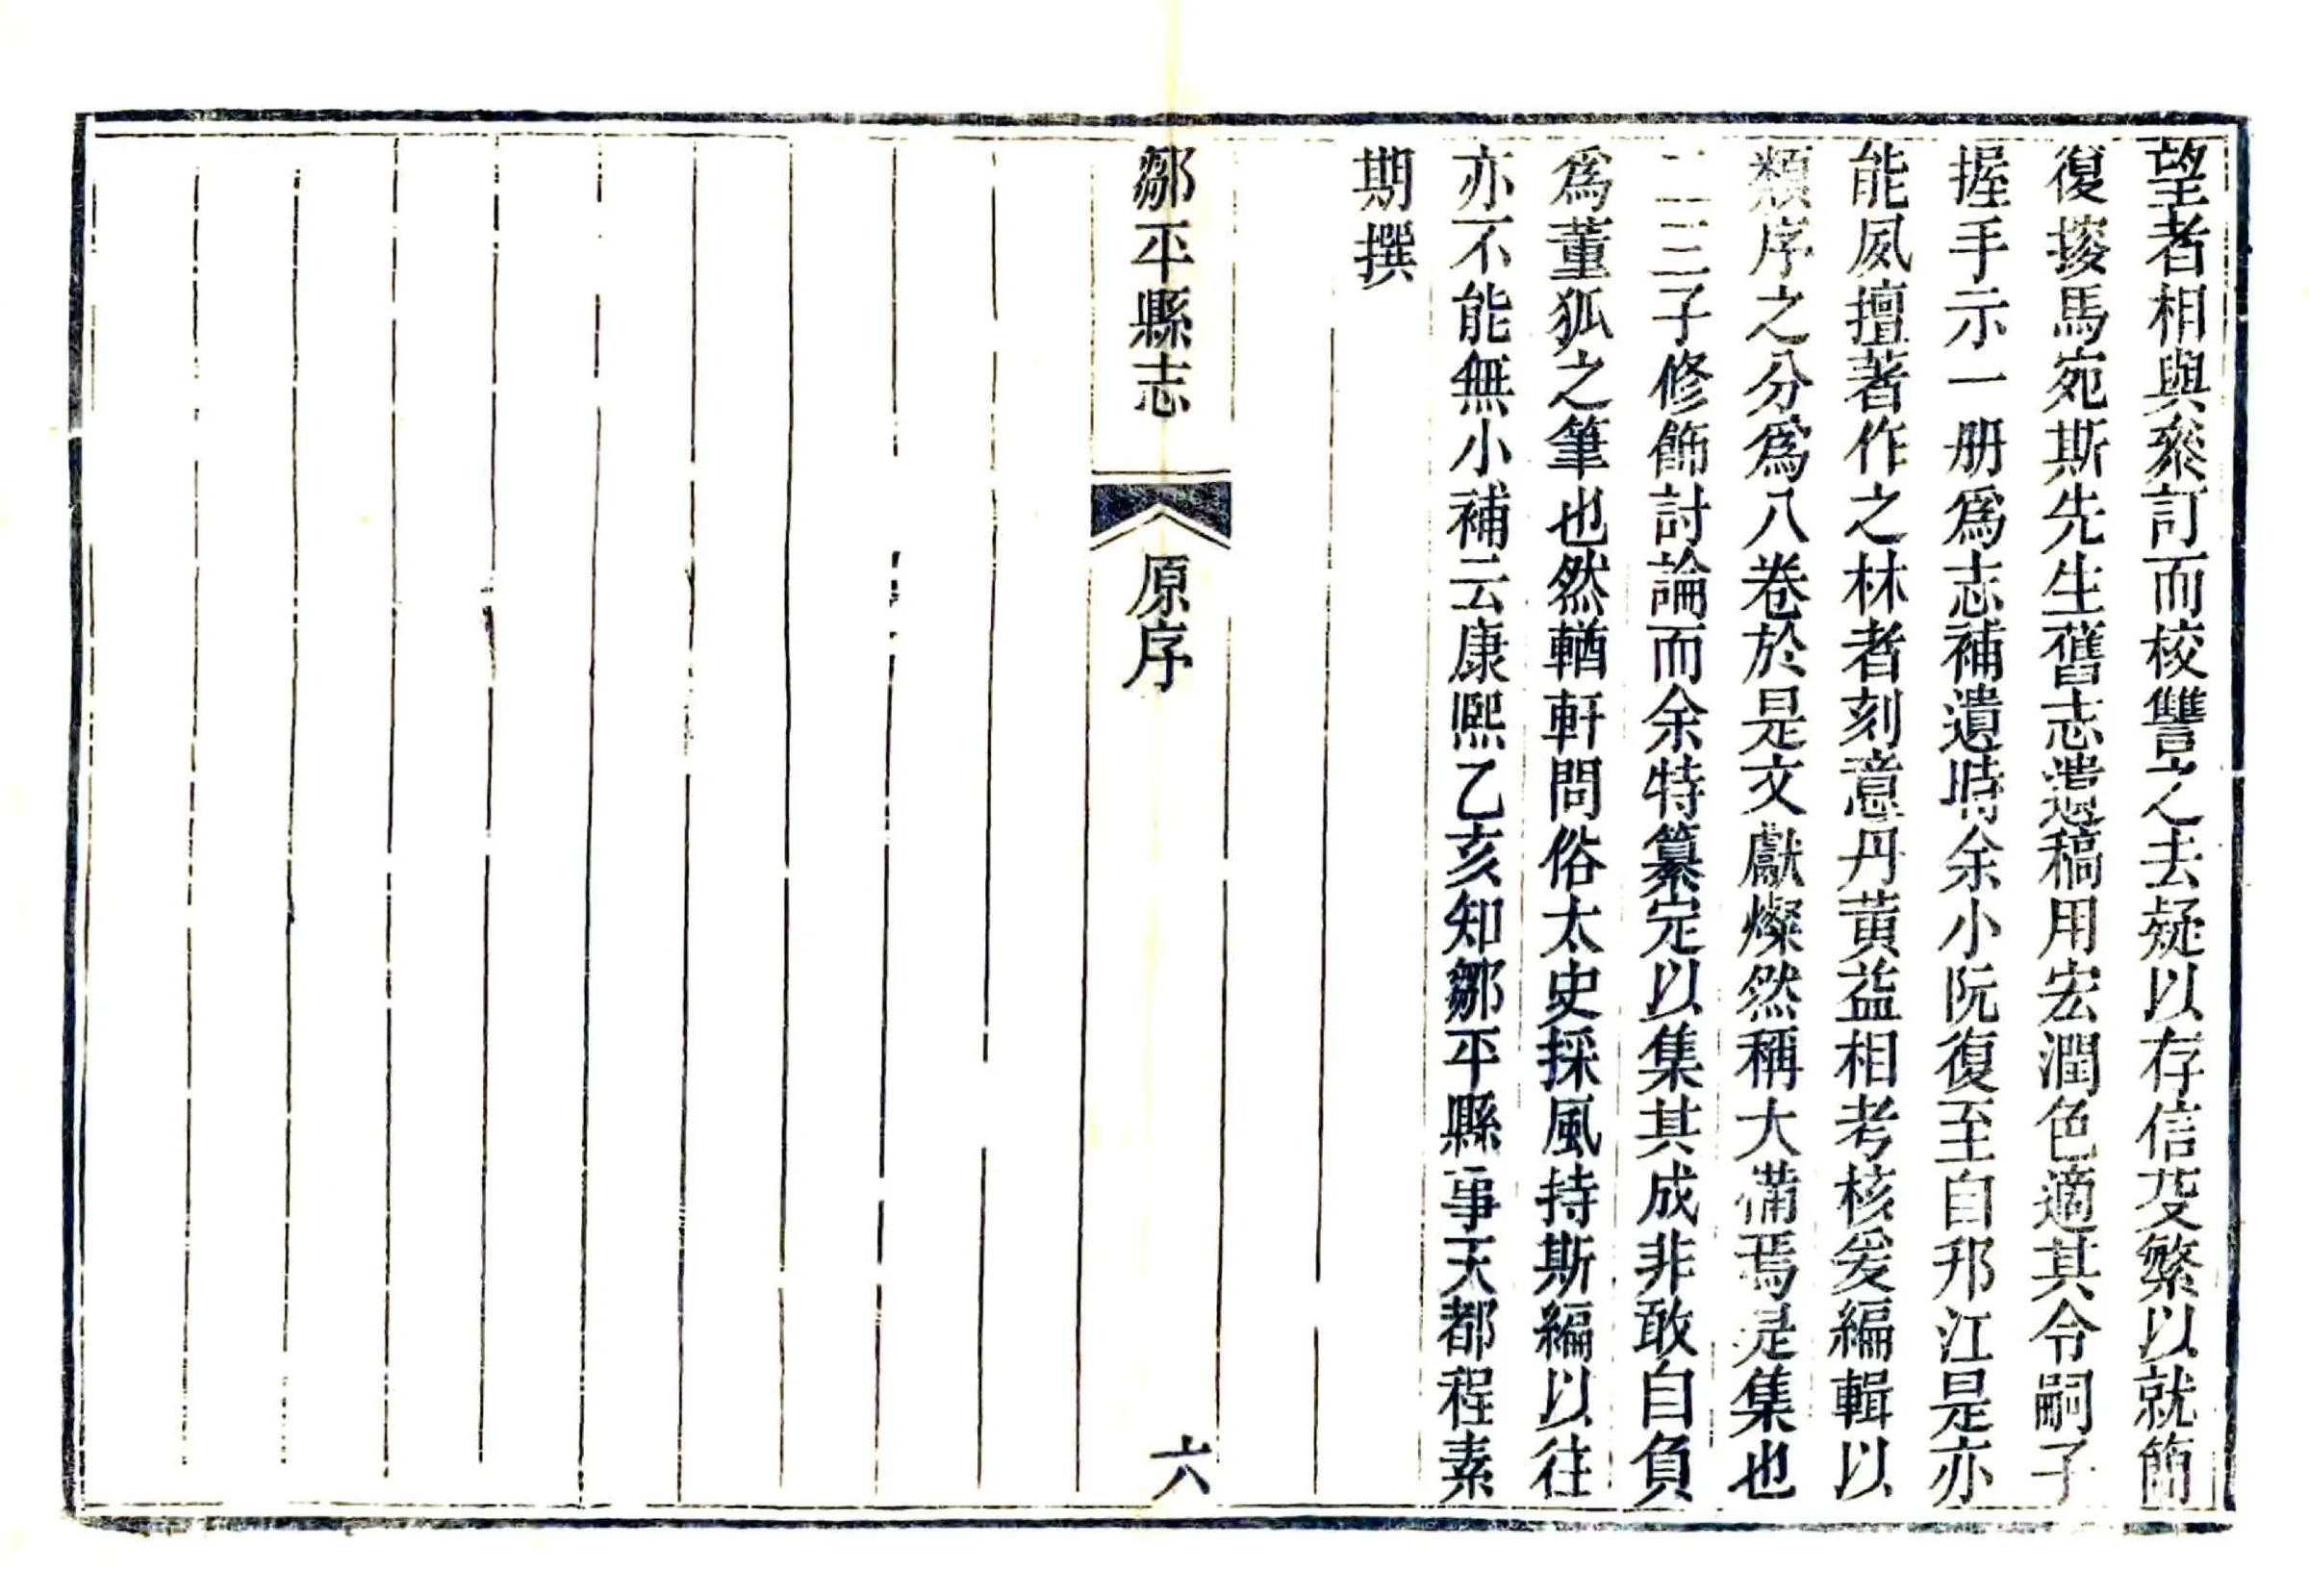 望者相與叅訂而校讐之去疑以存信芟繁以就簡
復搜馬宛斯先生舊志遺稿用宏潤色適其令嗣子
握手示一册爲志補遺時余小阮復至自邗江是亦
能夙擅著作之林者刻意丹黃益相考核爰編輯以
類序之分爲八卷於是文獻燦然稱大備焉是集也
二三子修飾討論而余特纂定以集其成非敢自負
爲董狐之筆也然輶軒問俗太史採風持斯編以往
亦不能無小補云康熙乙亥知鄒平縣事天都程素
期撰
鄒平縣志
原序
六